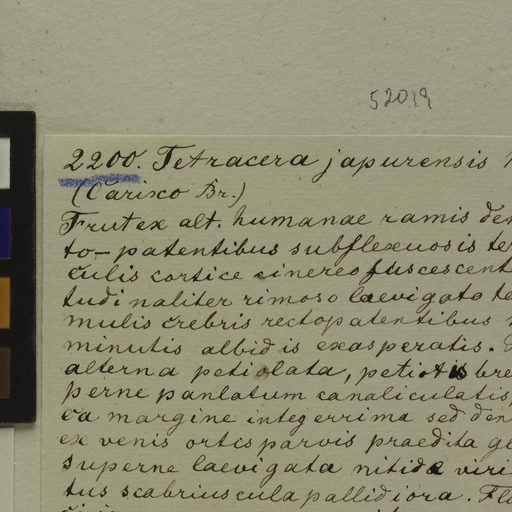 52019
2200. Tetracera japurensis
(Carixo Br.)
Frutex alt. humanae ramis den
to-patentibus subflexuosis ter
culis cortice cinereo fuscescent
tudinaliter rimoso laevigato te
mulis crebris rectopatentibus
minutis albidis exasperatis.
alterna petiolata, petiolis bre
perne panlatum canaliculatis,
ca margine integerrima sed den
ex venis ortis parvis praedita gl
superne laevigata nitida viri
tus scabriuscula pallidiora. Fl